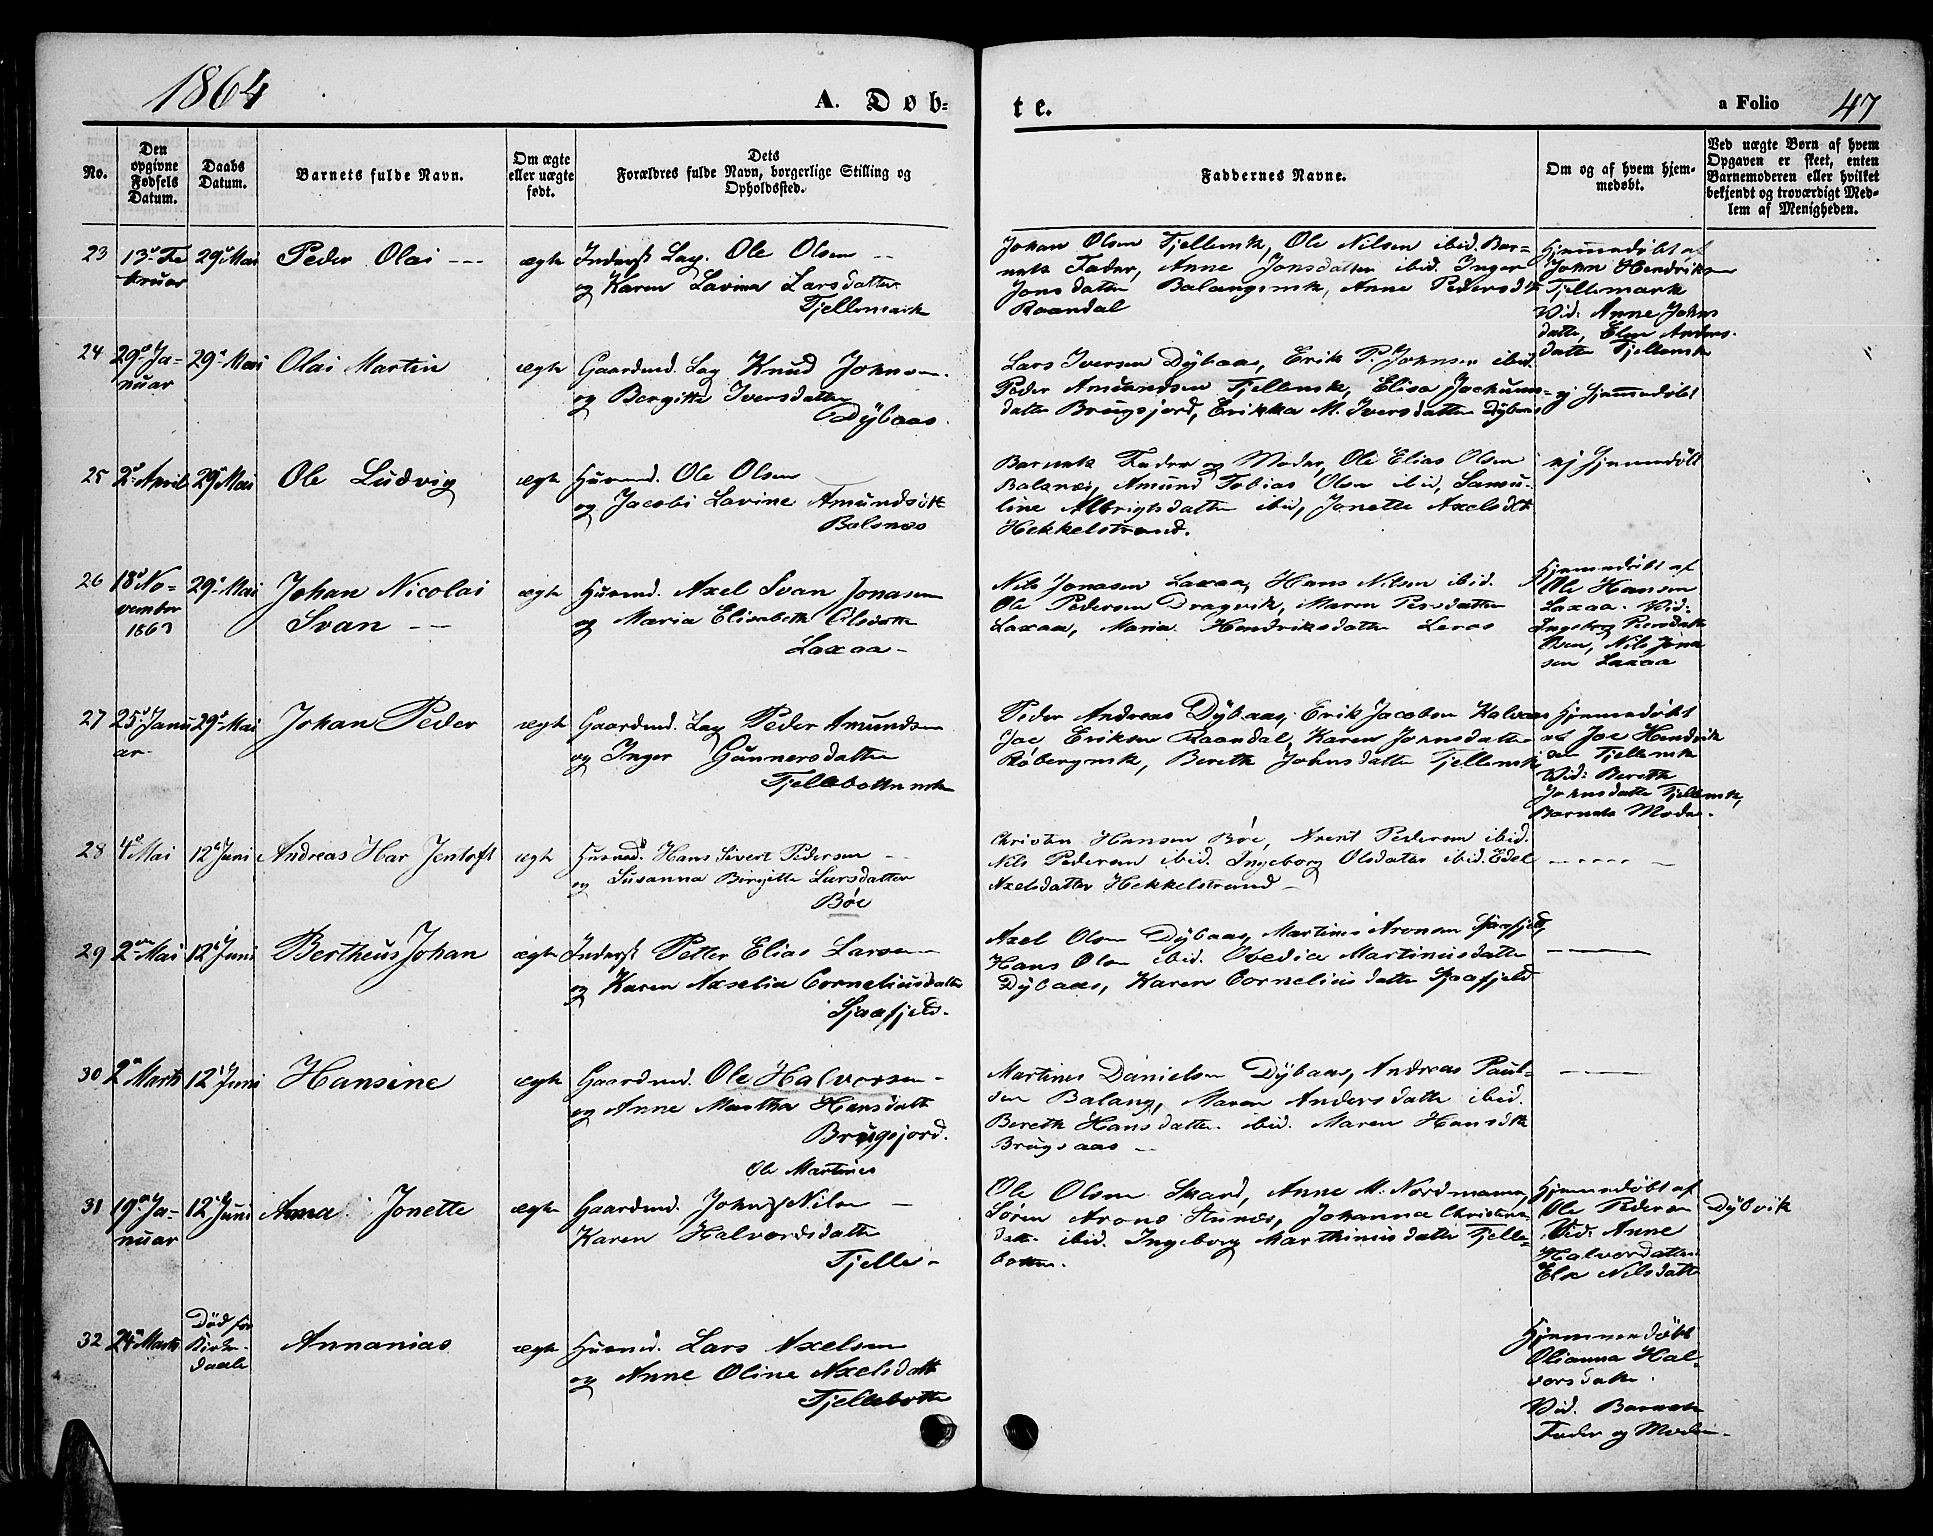 1864
A. Døb-
te.
a Folio 47
No.
Den opgivne Fødsels Datum.
Daabs Datum.
Barnets fulde Navn.
Om ægte eller uægte født.
Dets Forældres fulde Navn, borgerlige Stilling og Opholdssted.
Faddernes Navne.
Om og af hvem hjemmedøbt.
Ved uægte Børn af hvem Opgaven er skeet, enten Barnemoderen eller hvilket bekjendt og troværdigt Medlem af Menigheden.
23 13de Fe 29de Mai Peder Olai ægte Inderst Lap. Ole Olsen
bruar og Karen Lavina Larsdatter
Fjellemark
Johan Olsen Fjellemk, Ole Nilsen ibid. Bar-
nets Fader, Anne Jonsdatter ibid. Inger
Jonsdatter Balangsmk, Anne Pedersdtr
Raandal
Hjemmedøbt af
John Hendriksen
Fjellemark
Vid: Anne Johns
datter, Elen Anders-
datter Fjellemk
24 29de Ja- 29de Mai Olai Martin ægte Gaardmd. Lap Knud Johnsen
nuar og Bergitte Iversdatter
Dybaas
Lars Iversen Dybaas, Erik P. Johnsen ibid.
Peder Amundsen Fjellemk, Elisa Jochums-
datter Brugsjord, Erikka M. Iversdatter Dybaas
ej hjemmedøbt
25 2de April 29de Mai Ole Ludvig ægte Huusmd. Ole Olsen
og Jacobi Lavine Amundsdtr
Balsnæs
Barnets Fader og Moder, Ole Elias Olsen
Balsnæs, Amund Tobias Olsen ibid, Samu-
line Albrigtsdatter ibid, Jonette Axelsdtr
Hekkelstrand.
ej hjemmedøbt
26 18de No- 29de Mai Johan Nicolai ægte Huusmd. Axel Svan Jonasen
vember Svan og Maria Elisabeth Olsdatter
1863 Laxaa
Nils Jonasen Laxaa, Hans Nilsen ibid.
Ole Pedersen Dragvik, Maren Persdatter
Laxaa, Maria Hendriksdatter Leros
Hjemmedøbt af
Ole Hansen
Laxaa. Vid:
Ingeborg Persdatter
Nils Jona
sen Laxaa
27 25de Janu 29de Mai Johan Peder ægte Gaardmd. Lap Peder Amundsen
ar og Inger Gunnersdatter
Fjellebottenmk
Peder Andreas Dybaas, Erik Jacobsen Kalvaas
Joe Eriksen Raandal, Karen Johnsdatter
Røbergmk, Bereth Johnsdatter Fjellemk
Hjemmedøbt
af Joe Hendrik
sen Fjellemk
Vid: Bereth
Johnsdatter Fjellemk,
Barnets Moder.
28 4de Mai 12te Juni Andreas Har Jentoft ægte Huusmd. Hans Sivert Pedersen
og Susanna Birgitte Larsdatter
Bøe
Christen Hansen Bøe, Arent Pedersen ibid.
Nils Pedersen ibid. Ingeborg Olsdatter ibid. Edel
Axelsdatter Hekkelstrand
29 2den Mai 12te Juni Bertheus Johan ægte Inderst Petter Elias Larsen
og Karen Axselia Corneliusdatter
Sjaafjeld.
Axel Olsen Dybaas, Martinus Aronsen Sjaafjeld,
Hans Olsen ibid. Ovedia Martinusdatter
Dybaas, Karen Corneliusdatter Sjaafjeld
30 2den Marts 12te Juni Hansine ægte Gaardmd. Ole Halvorsen
og Anne Martha Hansdatter
Brugsjord.
Martines Danielsen Dybaas, Andreas Paul-
sen Balang, Maren Andersdatter ibid.
Bereth Hansdatter ibid. Maren Hansdtr
Brugsaas
Ole Martines
31 19de Ja- 12te Juni Anna Jonette ægte Gaardmd. John Nilsen
nuar Karen Halvordsdatter
Fjelle
Ole Olsen Skard, Anne M. Nordmann,
Søren Arons Stunes, Johanna Christens
datter ibid. Ingeborg Marthinusdatter Fjelle-
botten.
Hjemmedøbt af
Ole Pedersen Dybvik
Vid: Anne
Halvordatter
Else Nilsdatter
32 24de Marts Død før Annanias ægte Huusmd. Lars Axelsen
Kirke- og Anne Oline Axelsdatter
daab Fjellebotten
Hjemmedøbt
Olianna Hal-
vorsdatter.
Vid. Barnets
Fader og Moder.